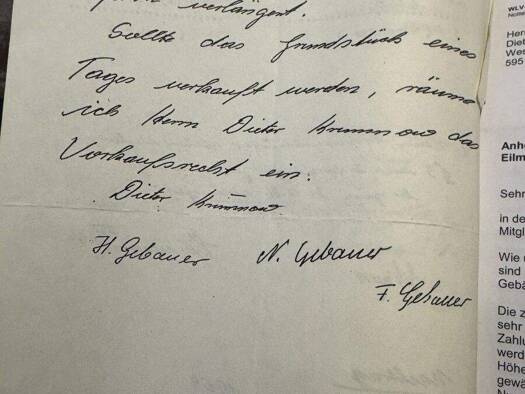 verlängert.
Sollte das Grundstück eines
Tages verkauft werden, räume
ich Herrn Dieter Krummow das
Vorkaufsrecht ein.
Dieter Krummow
H. Gebauer N. Gebauer
F. Gebauer
WLV
Her
Diet
Wes
595
Anh
Eilm
Sehr
in de
Mitgl
Wie
sind
Gebä
Die z
sehr
Zahlu
werd
Höhe
gewä